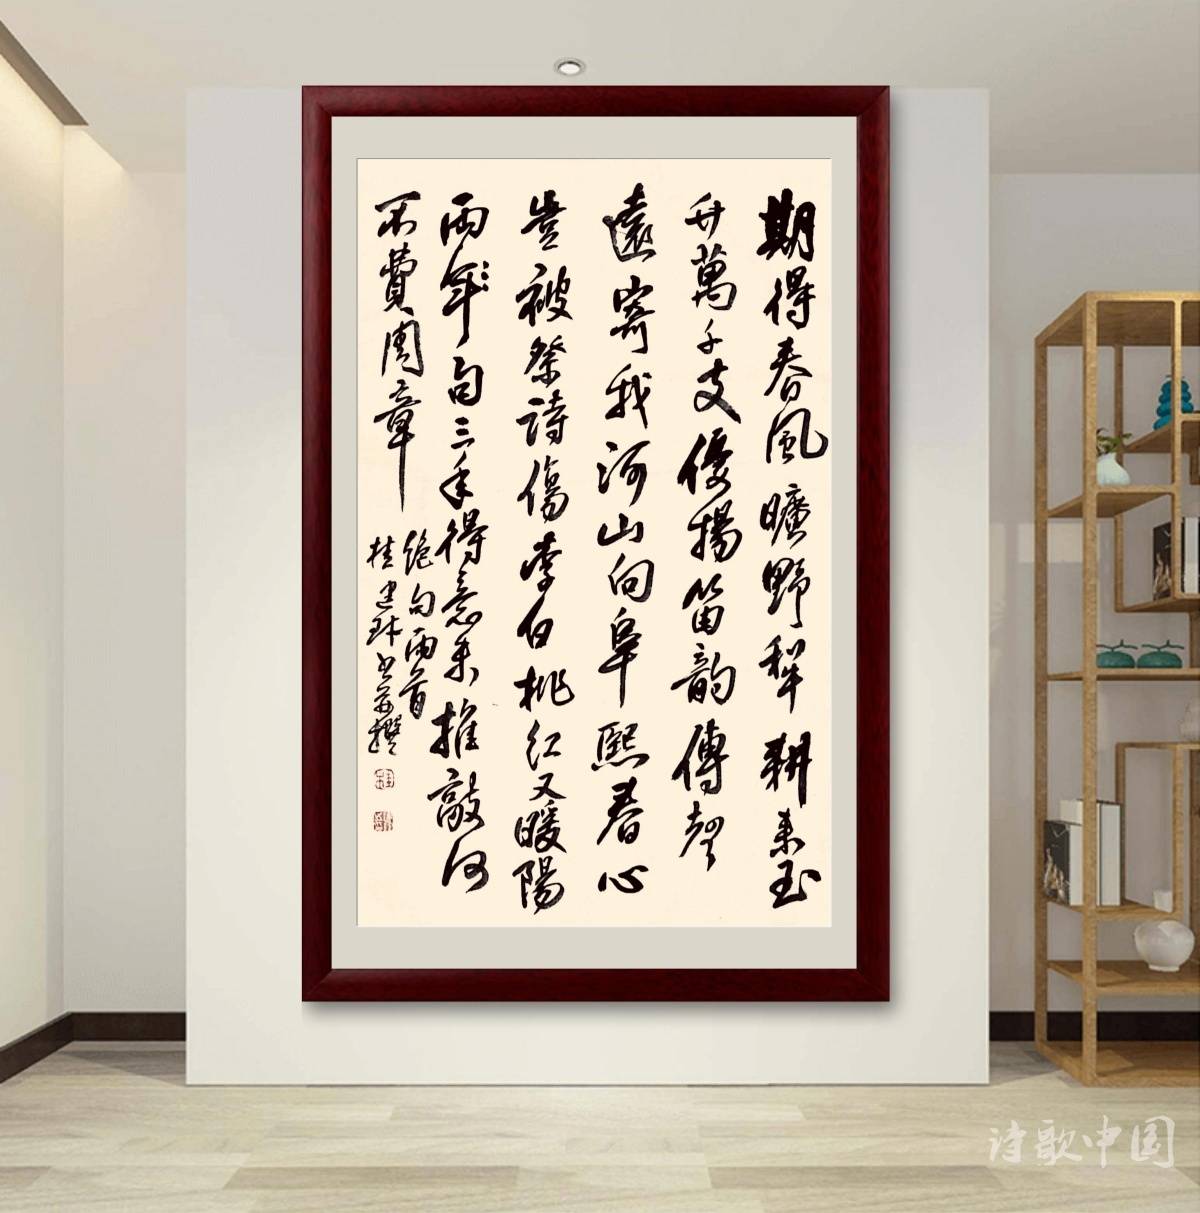 期得春風曠野犂耕来玉
升萬千支優揚笛韵傳聲
遠寄我河山向阜熙春心
豈被祭詩傷李白桃紅又暖陽
兩年句三年得意未推敲何
不費周章
絶句兩首
桂建林書并撰
诗歌中国